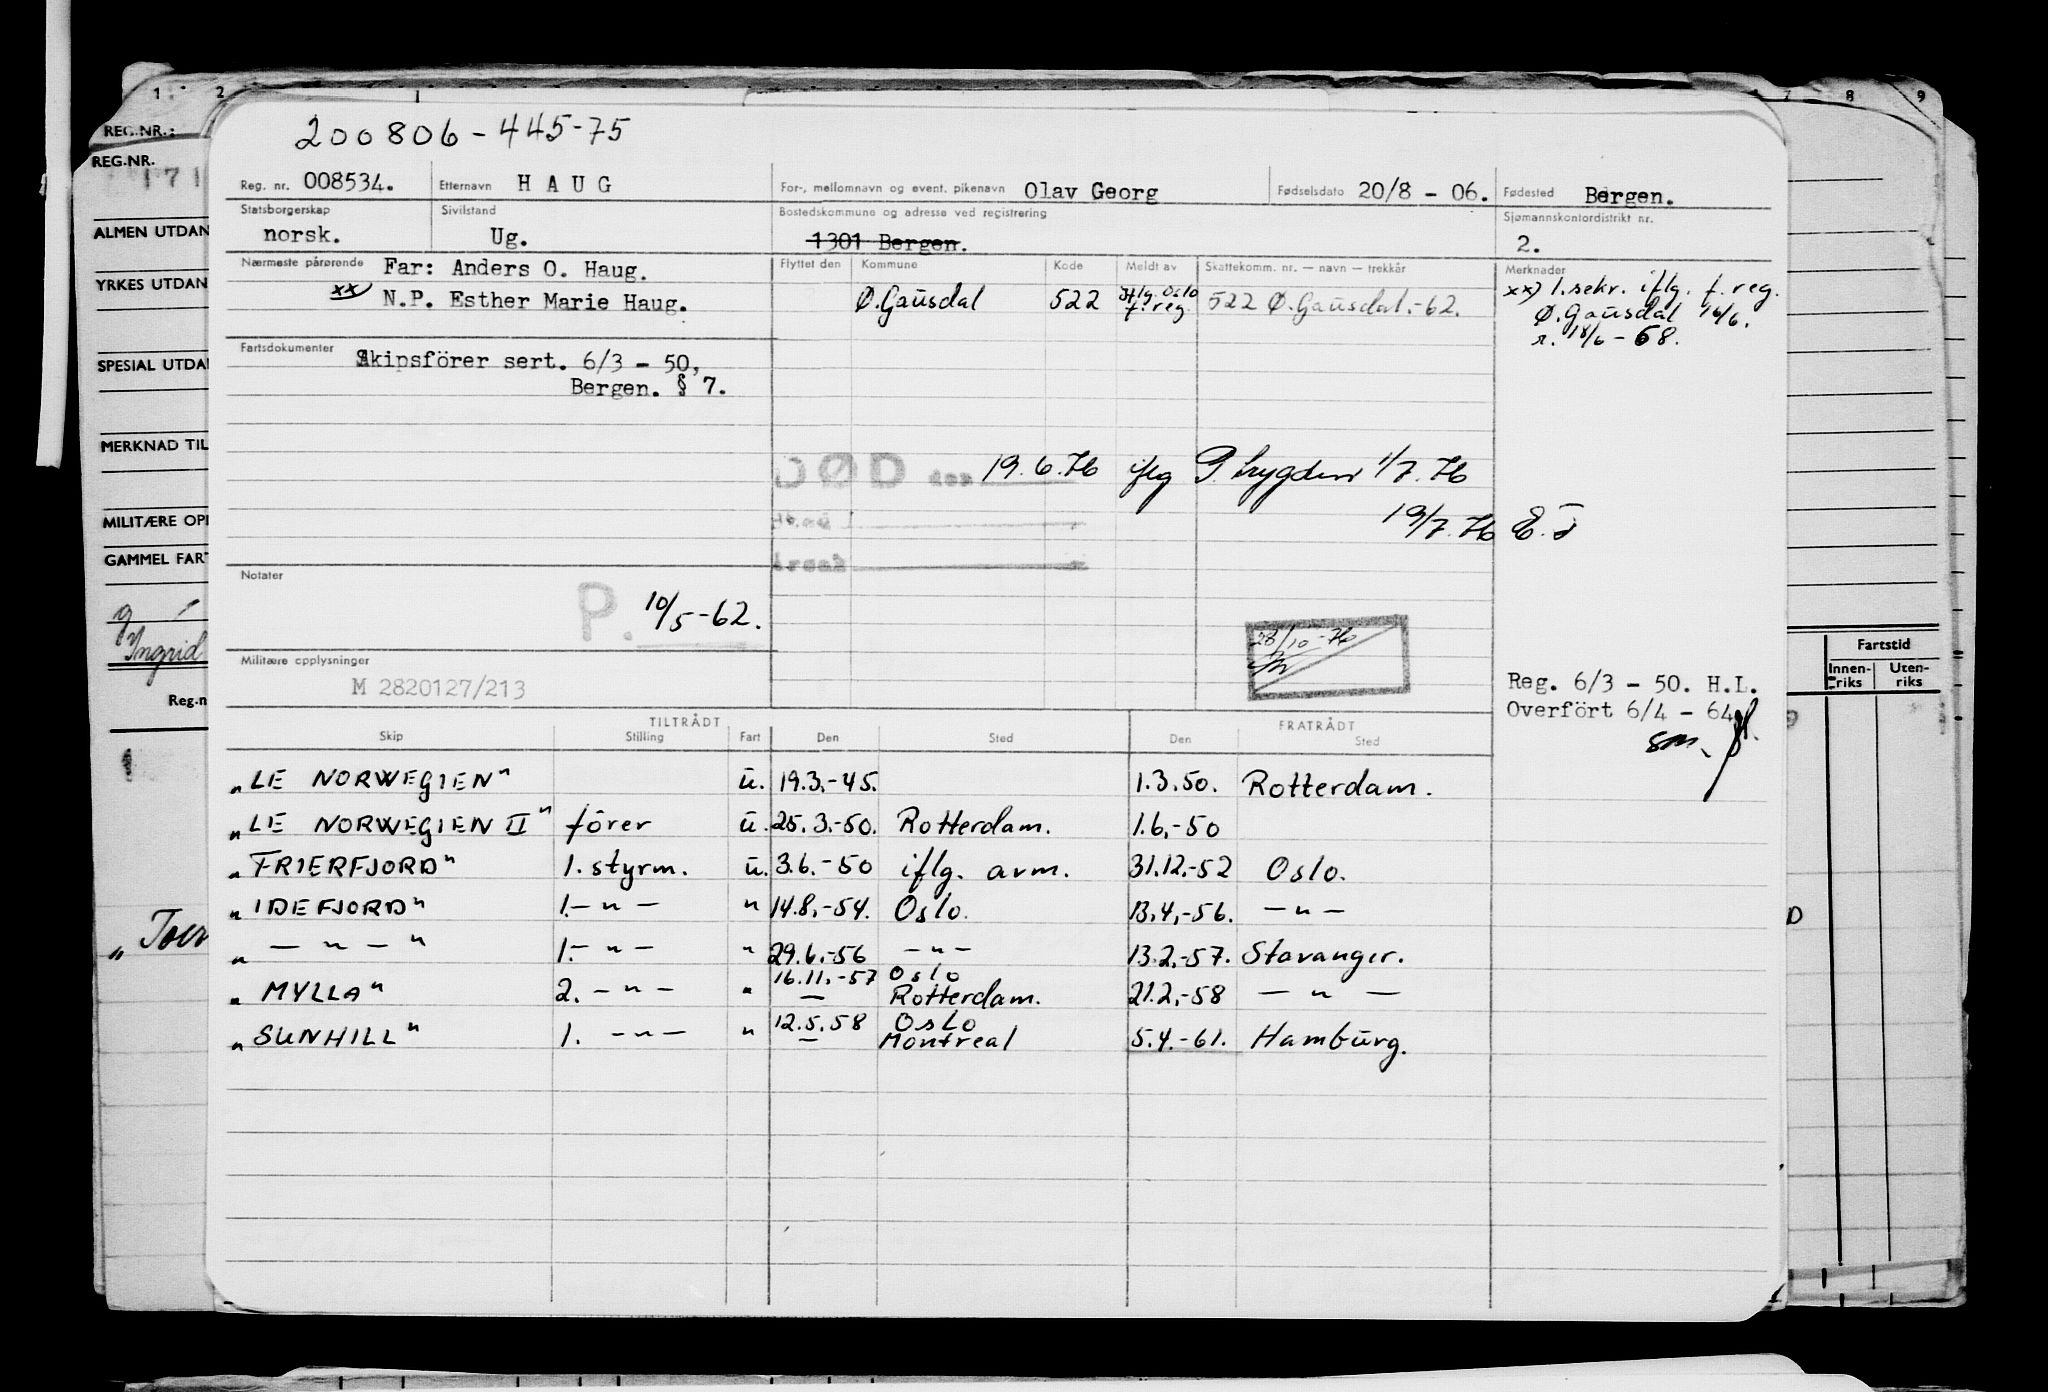 200806-445-75
Reg. nr. 008534. Etternavn HAUG For-, mellomnavn og event. pikenavn Olav Georg Fødselsdato 20/8 - 06. Fødested Bergen.
Statsborgerskap norsk. Sivilstand Ug. Bostedskommune og adresse ved registrering 1301 Bergen. Sjømannskontordistrikt nr. 2.
Nærmeste pårørende Far: Anders O. Haug.
xx) N.P. Esther Marie Haug.
Flyttet den Kommune Kode Meldt av Skattekomm. nr. — navn — trekkår Merknader
Ø. Gausdal 522 Iflg. Oslo f. reg. 522 Ø. Gausdal.-62.
xx) 1. sekr. iflg. f. reg.
Ø. Gausdal 16/6.
r. 18/6-68.
Fartsdokumenter Skipsförer sert. 6/3 - 50,
Bergen. § 7.
DØD den 19.6.76 iflg P. trygden 1/7.76
19/7.76 E.J
Årsak
Notater
P. 10/5-62.
28/10-76
Militære opplysninger
M 2820127/213
Reg. 6/3 - 50. H.L.
Overfört 6/4 - 64
sm.
TILTRÅDT FRATRÅDT
Skip Stilling Fart Den Sted Den Sted
"LE NORWEGIEN" u. 19.3.-45. 1.3.50. Rotterdam.
"LE NORWEGIEN II" förer u. 25.3.-50. Rotterdam. 1.6.-50
"FRIERFJORD" 1. styrm. u. 3.6.-50 iflg. avm. 31.12.-52 Oslo.
"IDEFJORD" 1.-"- " 14.8.-54. Oslo. 13.4.-56. -"-
"-"-" 1.-"- " 29.6.-56 -"- 13.2.-57. Stavanger.
"MYLLA" 2.-"- " 16.11.-57 Oslo Rotterdam. 21.2.-58 -"-
"SUNHILL" 1. -"- " 12.5.58 Oslo Montreal 5.4.-61. Hamburg.
1 2 7 8 9
REG.NR.:
REG.NR.
171
ALMEN UTDAN
YRKES UTDAN
SPESIAL UTDA
MERKNAD TIL
MILITÆRE OPP
GAMMEL FART
Ingrid
Reg.n
Fartstid
Innen-riks Uten-riks